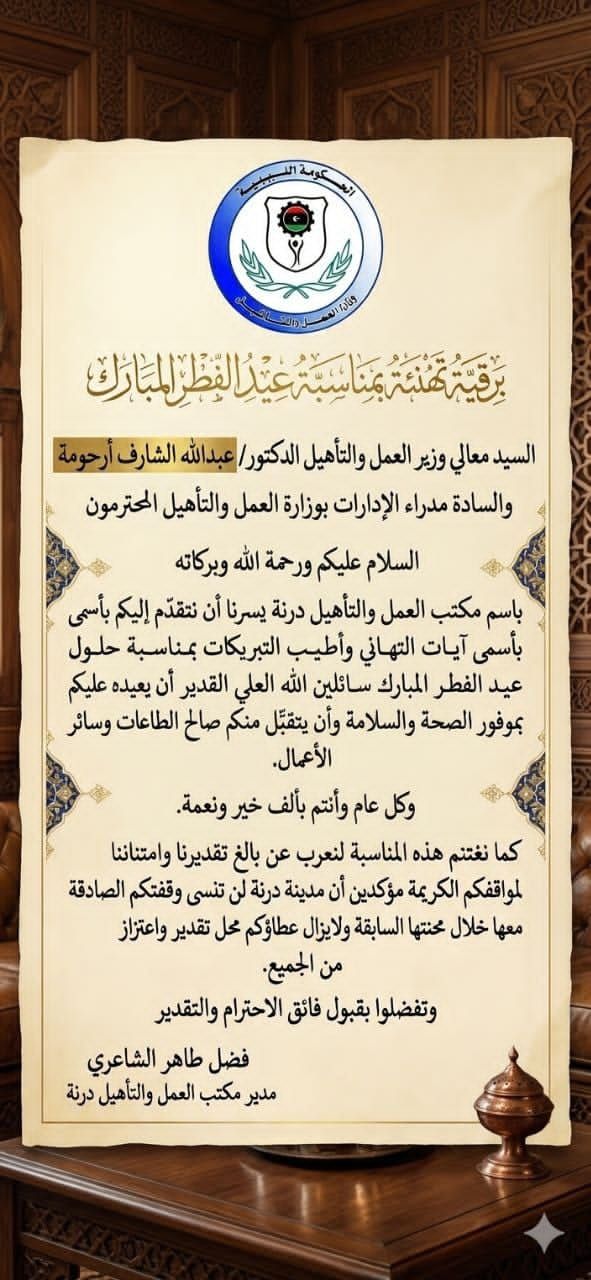 الحكومة الليبية
وزارة العمل والتأهيل
بَرقيَّة تَهْنئَة بمَناسَبَّة عيْدِ الفِّطْر المبَارَك
السيد معالي وزير العمل والتأهيل الدكتور/ عبدالله الشارف أرحومة
والسادة مدراء الإدارات بوزارة العمل والتأهيل المحترمون
السلام عليكم ورحمة الله وبركاته
باسم مكتب العمل والتأهيل درنة يسرنا أن نتقدّم إليكم بأسمى
بأسمى آيـات التهـاني وأطيـب التبريكات بمنـاسـبة حلـول
عيـد الفطـر المبارك سـائلين الله العلي القدير أن يعيده عليكم
بموفور الصحة والسلامة وأن يتقبَّل منكم صالح الطاعات وسائر
الأعمال.
وكل عام وأنتم بألف خير ونعمة.
كما نغتنم هذه المناسبة لنعرب عن بالغ تقديرنا وامتناننا
لمواقفكم الكريمة مؤكدين أن مدينة درنة لن تنسى وقفتكم الصادقة
معها خلال محنتها السابقة ولايزال عطاؤكم محل تقدير واعتزاز
من الجميع.
وتفضلوا بقبول فائق الاحترام والتقدير
فضل طاهر الشاعري
مدير مكتب العمل والتأهيل درنة